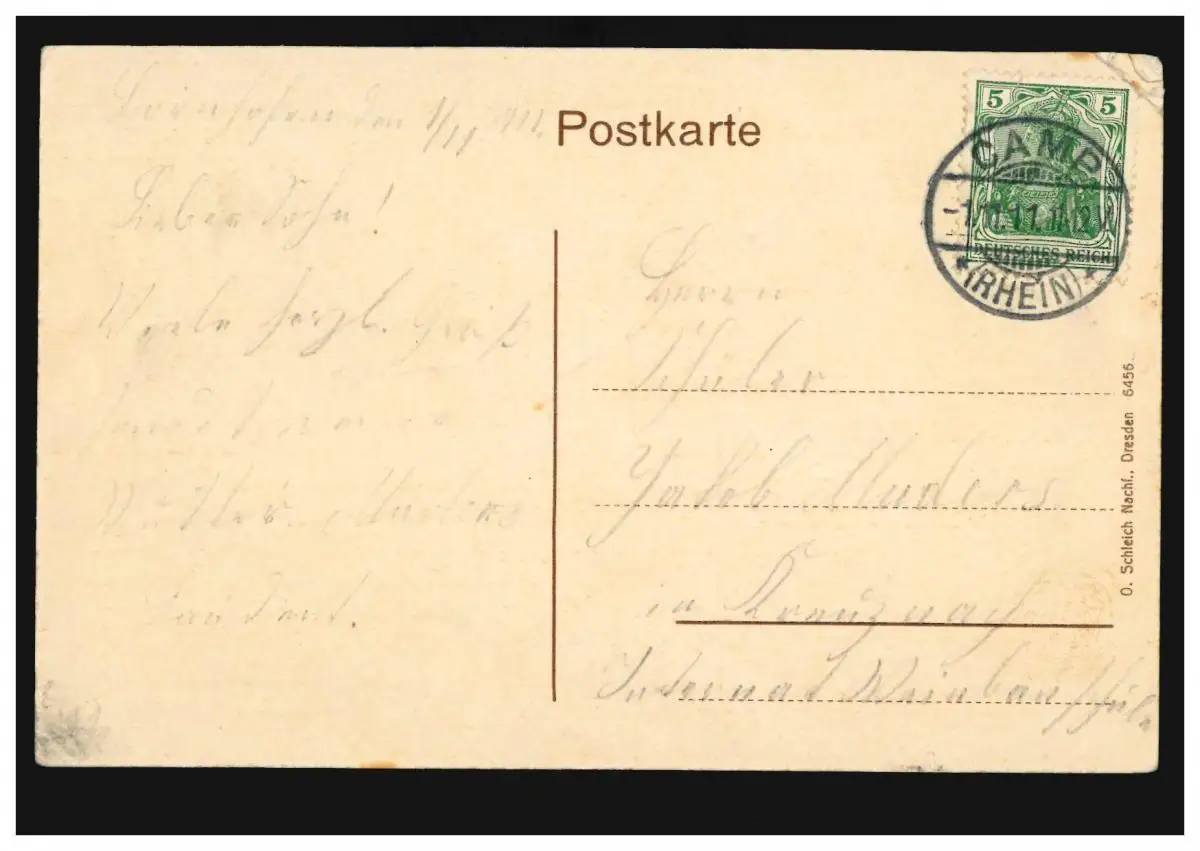 Bornhofen den 1/11 11.
Postkarte
Lieber Sohn!
Viele herzl. Grüß
Mutter. Muders
Herrn
Schüler
Jakob Muders
in Kreuznach
Internat Weinbauschule
5 5
DEUTSCHES REICH
CAMP
1.11.11. 11-12 V.
* (RHEIN) *
O. Schleich Nachf., Dresden 6456